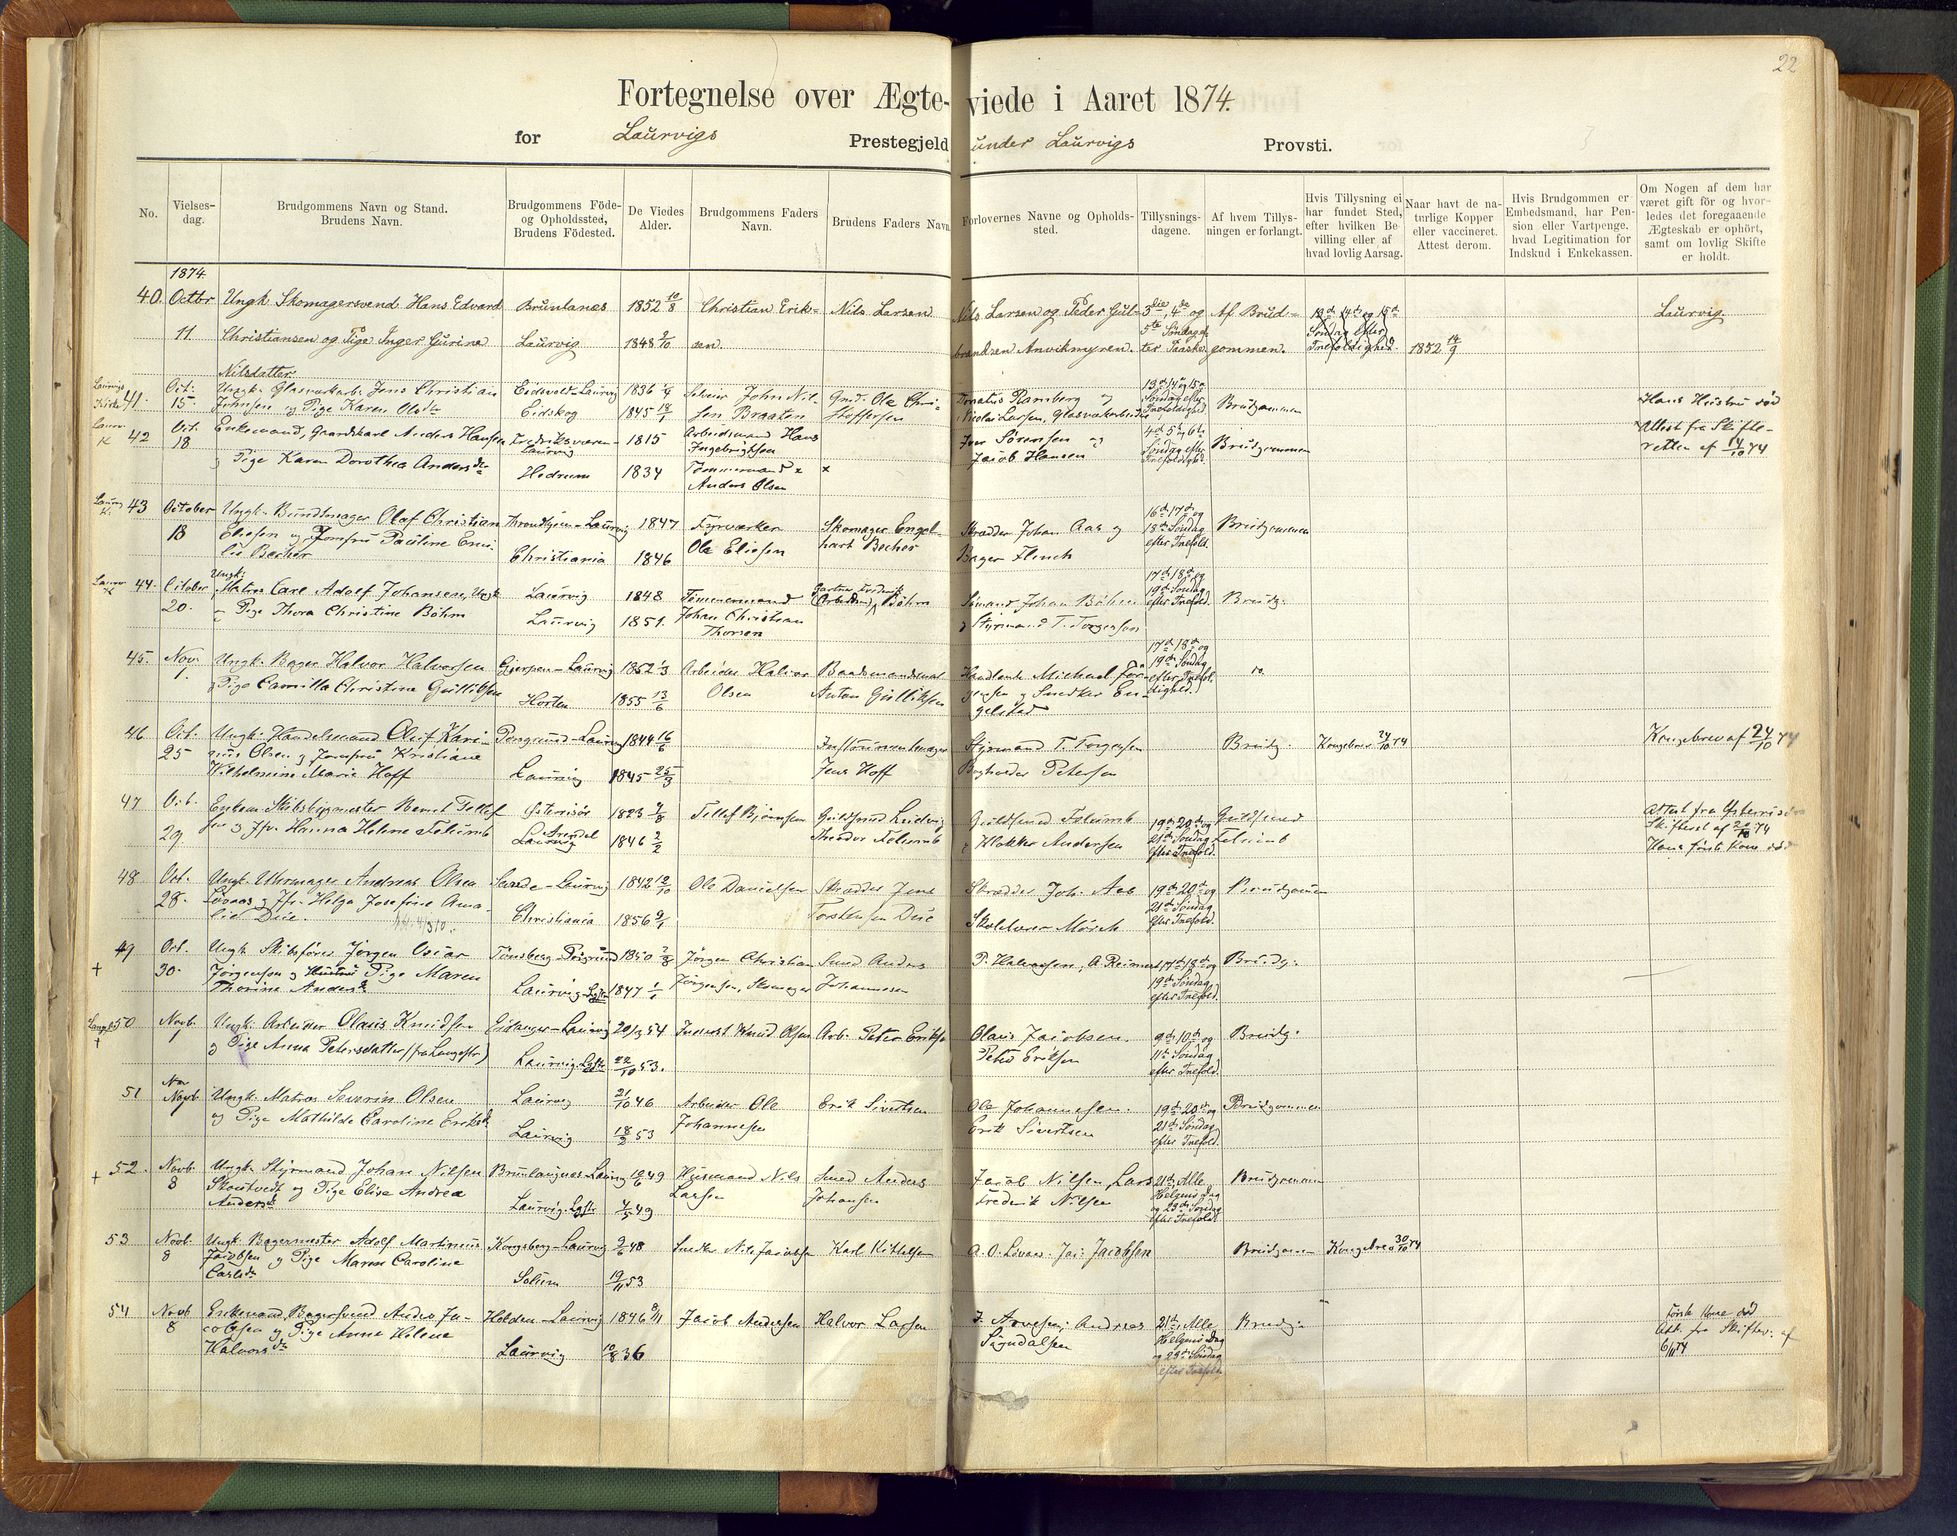 22
Fortegnelse over Ægte-viede i Aaret 1874.
for Laurvigs Prestegjeld under Laurvigs Provsti.
No.
Vielses-
dag.
Brudgommens Navn og Stand.
Brudens Navn.
Brudgommens Føde-
og Opholdssted,
Brudens Fødested.
De Viedes
Alder.
Brudgommens Faders
Navn.
Brudens Faders Navn.
Forlovernes Navne og Opholds-
sted.
Tillysnings-
dagene.
Af hvem Tillys-
ningen er forlangt.
Hvis Tillysning ei
har fundet Sted,
efter hvilken Be-
villing eller af
hvad lovlig Aarsag.
Naar havt de na-
turlige Kopper
eller vaccineret.
Attest derom.
Hvis Brudgommen er
Embedsmand, har Pen-
sion eller Vartpenge.
hvad Legitimation for
Indskud i Enkekassen.
Om Nogen af dem har
været gift før og hvor-
ledes det foregaaende
Ægteskab er ophørt,
samt om lovlig Skifte
er holdt.
1874.
40. Octbr Ungk. Skomagersvend Hans Edvard Brunlanes 1852 10/8 Christian Erik- Nils Larsen Nils Larsen og Peder Gul- 3die, 4de og Af Brud- 13de 14de og 15de Laurvig.
11. Christiansen og Pige Inger Gurine Laurvig 1848 2/10 sen. brandsen Anvikmyren. 5te Søndag ef- gommen. Søndag efter 1852 14/9
Nilsdatter. ter Paaske Trefoldighed.
Laurvigs Kirke 41. Oct: Ungk. Glasværkarb. Jens Christian Eidsvold-Laurvig 1836 Selveier John Nil- Gmd. Ole Chri- Donatus Ramberg og 13de 14de og 15de Brudgommen Hans Hustru død
15. Johnsen og Pige Karen Olsdr Eidskog 1845 18/1 sen Braaten stoffersen Nicolai Larsen, Glasværkarbeider Søndag efter Trefoldighed
Laurv. K 42 Oct. Enkemand, Gaardskarl Anders Hansen Fredriksværen-Laurvig 1815 Arbeidsmand Hans Ingebrigtsen Iver Sørensen og 4de 5te 6te Brudgommen Attest fra Skifte-
18 og Pige Karen Dorothea Andersdtr Hedrum 1834 Tømmermand x x Jacob Hansen Søndag efter Trefoldighed retten af 14/10 74
Anders Olsen
Laurv. K. 43 October Ungk. Bundtmager Olaf Christian Trondhjem-Laurvig 1847 Fyrværker Skomager Engel- Skrædder Johan Aas og 16de 17de og Brudgommen
18 Eliesen og Jomfru Pauline Emi- Christiania 1846 Ole Eliesen hart Becher Bager Flinck 18de Søndag
lie Becher efter Trefold.
Laurv. K 44. October Ungk: Matros Carl Adolf Johansen, Ungk Laurvig 1848 Tømmermand Gartner Fredrik (Arbeidsmd) Bøhm Sømand Johan Bøhm 17de 18de og Brudg.
20. og Pige Thora Christine Bøhm Laurvig 1851. Johan Christian og Styrmand T. Torgersen 19de Søndag
Thorsen efter Trefold.
45. Nov. Ungk. Bager Halvor Halvorsen Gjerpen-Laurvig 1852 1/3 Arbeider Halvor Baadsmandsmat Handlende Michael Jør- 17de 18de og
1. og Pige Camilla Christine Gulliksen Horten 1855 13/6 Olsen Anton Gulliksen gensen og Snedker En- 19de Søndag
gelstad efter Trefoldighed.
46 Oct: Ungk. Handelsmand Oluf Kari- Porsgrund-Laurvig 1844 16/6 Instrumentmager Styrmand T. Torgersen Brudg. Kongebrev 24/10 74 Kongebrev af 24/10 74
25 nius Olsen og Jomfru Kristiane Laurvig 1845 25/3 Jens Hoff Bogholder Petersen
Wilhelmine Marie Hoff
47 Oct. Enkem. Skibsbygmester Bernt Tellef Østerisør 1823 4/8 Tellef Bjørnsen Guldsmed Ludvig Guldsmed Folumb 19de 20de og Guldsmed Attest fra Østerrisør
29 sen og Jfr. Hanna Helene Folumb Arendal Laurvig 1846 2/2 Theodor Folumb og Klokker Andersen 21de Søndag Folumb Skifteret af 20/10 74
efter Trefold. Hans første Kone død
48 Oct: Ungk. Uhrmager Andreas Olsen Laurvig 1842 12/10 Ole Danielsen Skrædder Jens Skrædder Joh: Aas 19de 20de og Brudgommen
28. Løvaas og Jfr. Helga Josefine Ama- Christiania 1856 9/1 Torstensen Due Skolelærer Mørch 21de Søndag
lie Due. efter Trefold.
49 Oct. Ungk. Skibsfører Jørgen Oscar Tønsberg-Porsgrund 1850 2/8 Jørgen Christian Smed Anders P. Halvorsen, A. Reimert 17de 18de og Brudg:
+ 30. Jørgensen og Hustru Pige Maren Laurvig-Lgstr 1847 1/1 Jørgensen, Skomager Johannesen 19de Søndag
Thorine Andersdr efter Trefold.
Langest. + 50 Novb. Ungk. Arbeider Olaus Knudsen Eidanger-Laurvig 20/3 54 Inderst Knud Olsen Arb. Peter Eriksen Olaus Jacobsen. 9de 10de og Brudg:
1 og Pige Anna Petersdatter (fra Langestr) Laurvig-Lgstr 22/10 53. Peter Eriksen 11te Søndag
efter Trefold.
51 Novb. Ungk. Matros Severin Olsen Laurvig 21/10 46 Arbeider Ole Erik Sivertsen Ole Johannesen. 19de 20de og Brudgommen
og Pige Mathilde Caroline Eriksdr Laurvig 18/2 53 Johannesen Erik Sivertsen 21de Søndag
efter Trefold.
+ 52. Novb. Ungk. Styrmand Johan Nilsen Brunlaugnes-Laurvig 19/6 49 Husmand Nils Smed Anders Jacob Nilsen, Lars 21de, Alle Brudgommen
8 Skoutvedt og Pige Elise Andrea Laurvig-Lgstr 4/5 49 Larsen Johansen Frederik Nilsen Helgens Dag
Andersdr og 23de Søndag
efter Trefold.
53 Novb. Ungk. Bagermester Adolf Martinius Kongsberg-Laurvig 9/6 48 Snedker Nils Jacobsen Karl Kittelsen A. O. Løvaas. Jac: Jacobsen Brudgommen Kongebrev 30/10 74
8 Jacobsen og Pige Maren Caroline Solum 19/11 53
Carlsdr
54 Novb Enkemand, Bagersvend Anders Ja- Holden-Laurvig 1846 8/11 Jacob Andersen Halvor Larsen J. Arvesen; Andreas 21de, Alle Brudg: Første Kone død
8 cobsen og Pige Anne Helene Laurvig 10/8 36 Sigvaldsen Helgens Dag Att. fra Skifter. af
Halvorsdr og 23de Søndag 6/11 74
efter Trefold.